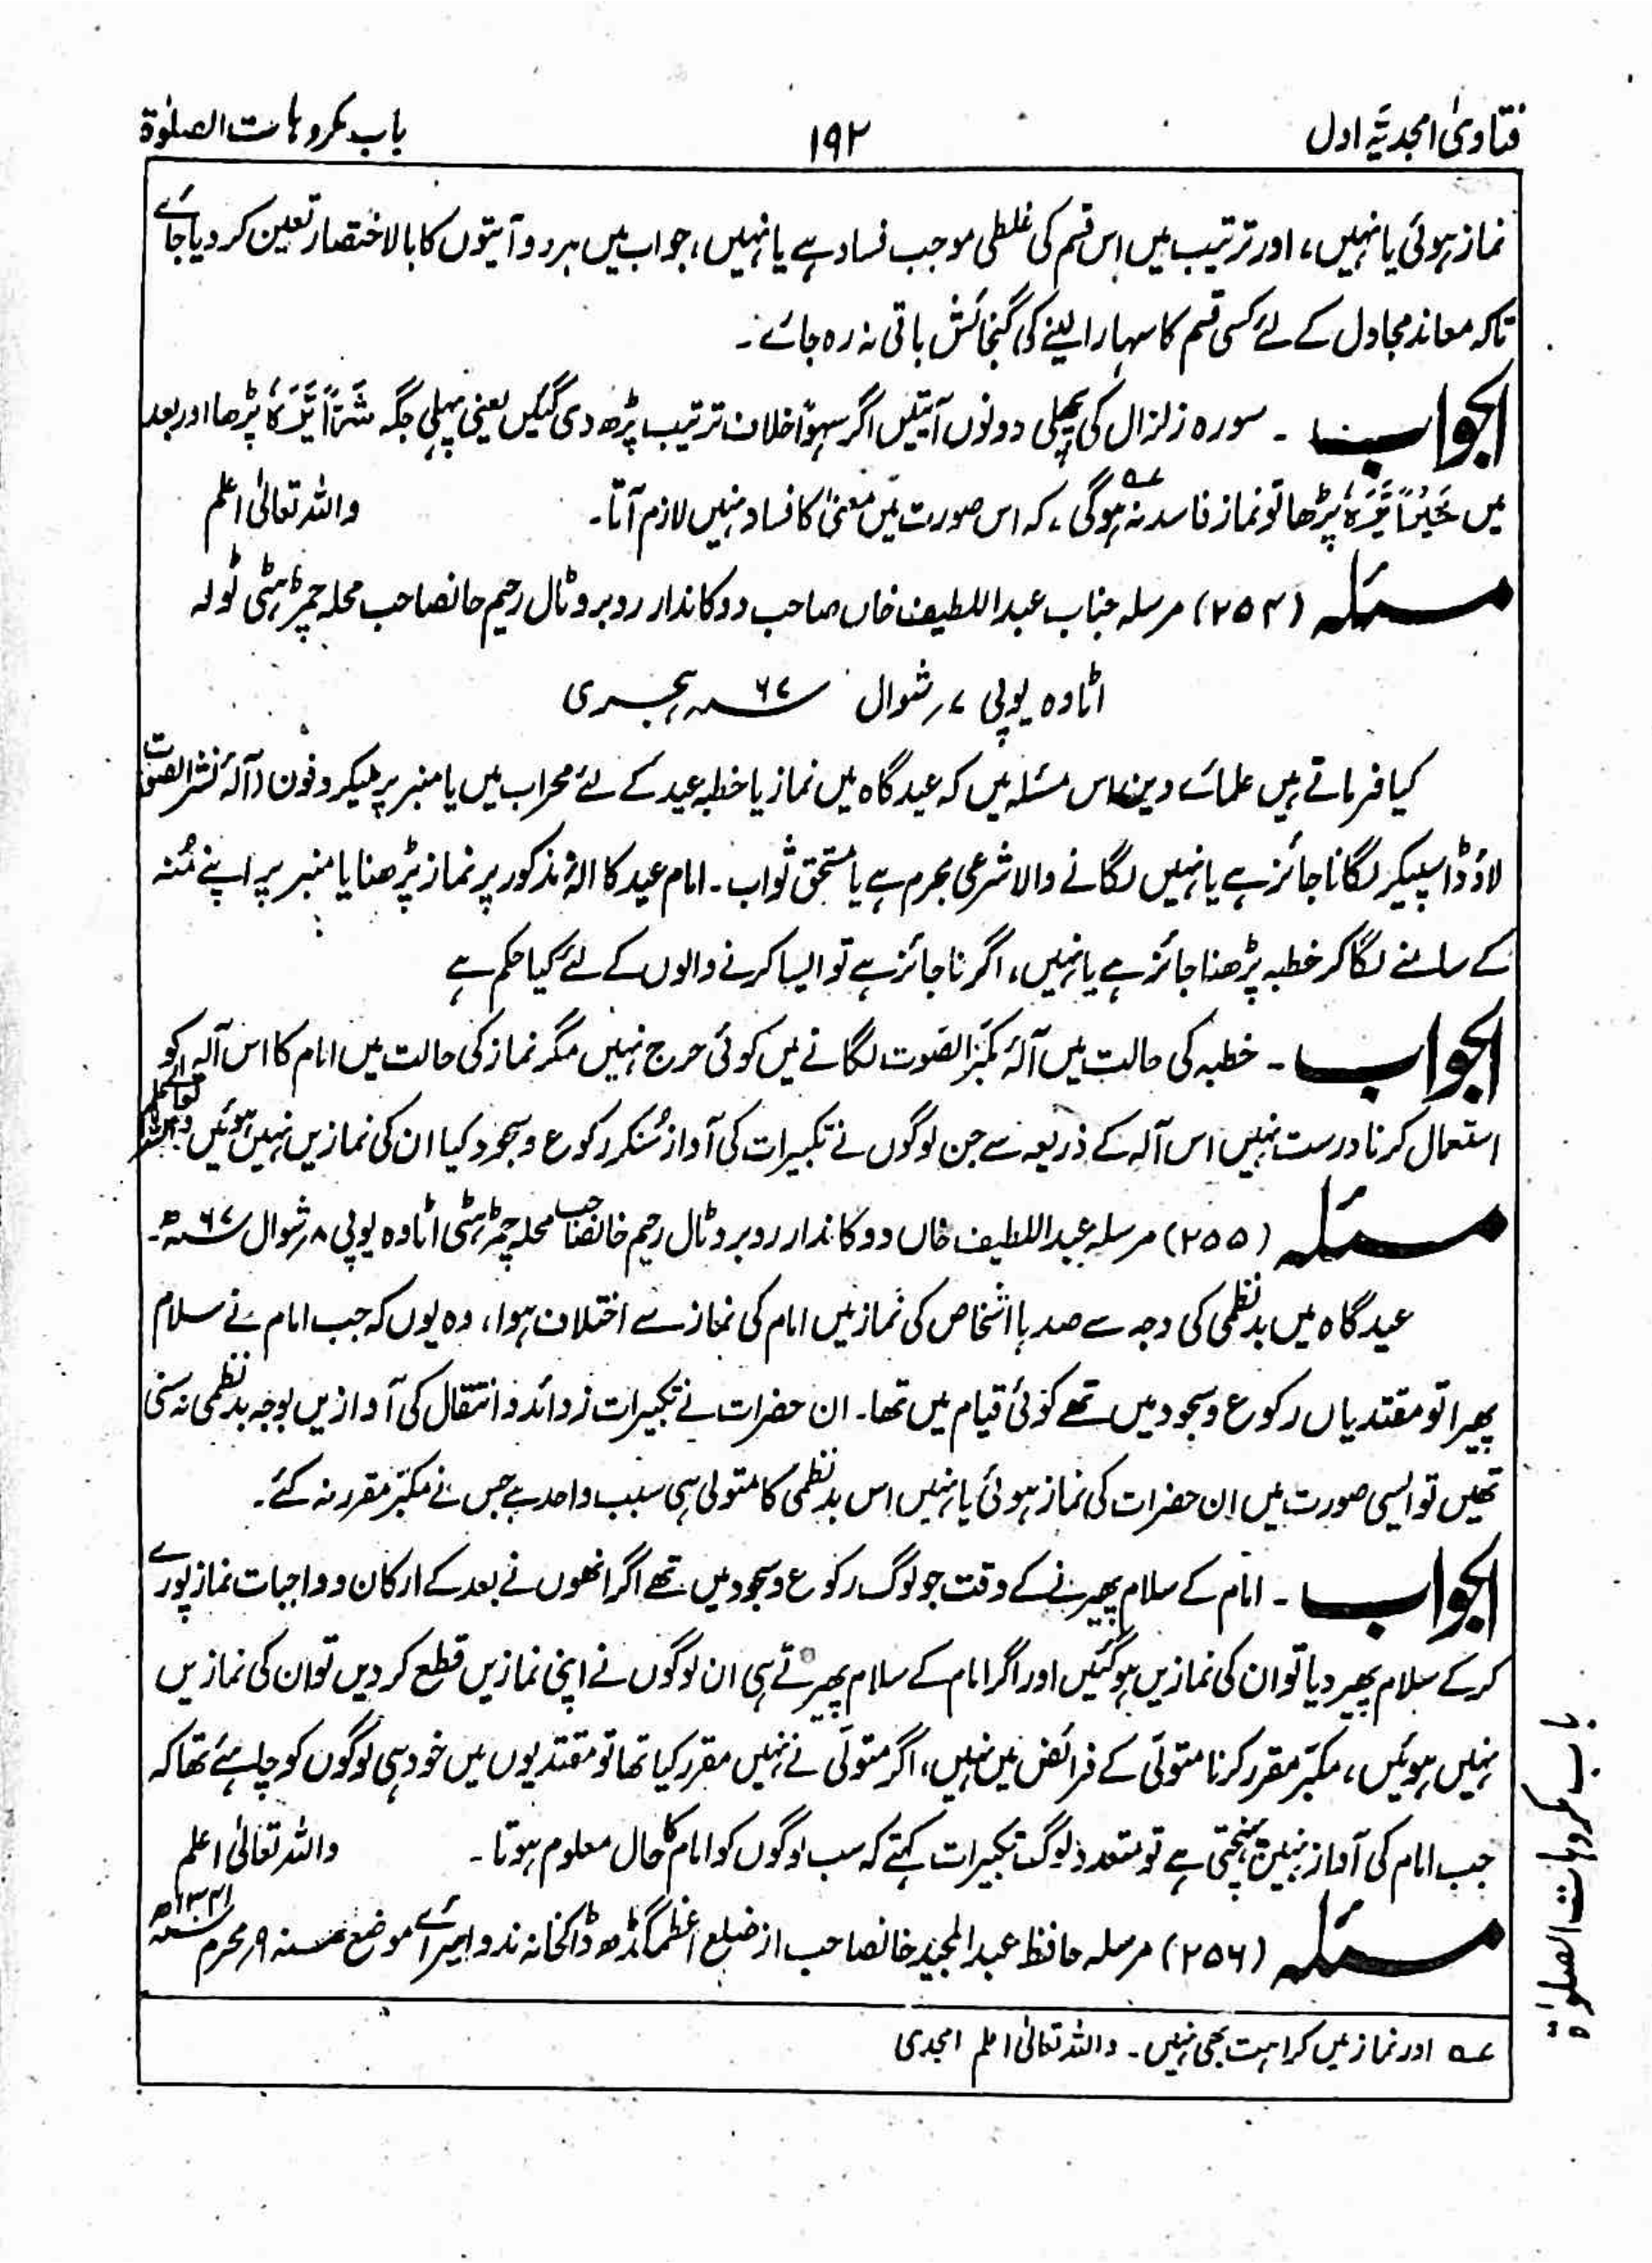 فتاویٰ امجدیّہ اول
۱۹۲
باب مکروہات الصلوٰۃ
نماز ہوئی یا نہیں، اور ترتیب میں اس قسم کی غلطی موجب فساد ہے یا نہیں، جواب میں ہر دو آیتوں کا بالاختصار تعین کر دیا جائے
تاکہ معاند مجاول کے لئے کسی قسم کا سہارا لینے کی گنجائش باقی نہ رہ جائے۔
الجواب ۔ سورہ زلزال کی پچھلی دونوں آیتیں اگر سہواً خلاف ترتیب پڑھ دی گئیں یعنی پہلی جگہ شَرًّا یَّرَہٗ پڑھا اور بعد
میں خَیْرًا یَّرَہٗ پڑھا تو نماز فاسد نہ ہوگی ؎، کہ اس صورت میں معنیٰ کا فساد نہیں لازم آتا۔ واللہ تعالیٰ اعلم
مسئلہ (۲۵۴) مرسلہ جناب عبد اللطیف خاں صاحب دوکاندار روبرو ٹال رحیم خانصاحب محلہ چمڑ ہٹی ٹولہ
اٹاوہ یوپی ۷ر شوال ۶۷ھ ہجری
کیا فرماتے ہیں علمائے دین اس مسئلہ میں کہ عیدگاہ میں نماز یا خطبہ عید کے لئے محراب میں یا منبر پر میکروفون (آلۂ نشر الصوت
لاؤڈ اسپیکر لگانا جائز ہے یا نہیں لگانے والا شرعی مجرم ہے یا مستحق ثواب۔ امام عید کا الۂ مذکور پر نماز پڑھنا یا منبر پر اپنے مُنہ
کے سامنے لگا کر خطبہ پڑھنا جائز ہے یا نہیں، اگر ناجائز ہے تو ایسا کرنے والوں کے لئے کیا حکم ہے
الجواب ۔ خطبہ کی حالت میں آلۂ مکبّر الصّوت لگانے میں کوئی حرج نہیں مگر نماز کی حالت میں امام کا اس آلہ کو
استعمال کرنا درست نہیں اس آلہ کے ذریعہ سے جن لوگوں نے تکبیرات کی آواز سُنکر رکوع و سجود کیا ان کی نمازیں نہیں ہوئیں واللہ تعالیٰ اعلم
مسئلہ (۲۵۵) مرسلہ عبد اللطیف خاں دوکاندار روبرو ٹال رحیم خانصاحب محلہ چمڑ ہٹی اٹاوہ یوپی ۸ر شوال ۶۷ھ۔
عیدگاہ میں بدنظمی کی وجہ سے صدہا اشخاص کی نماز میں امام کی نماز سے اختلاف ہوا، وہ یوں کہ جب امام نے سلام
پھیرا تو مقتدیاں رکوع و سجود میں تھے کوئی قیام میں تھا۔ ان حضرات نے تکبیرات زوائد و انتقال کی آوازیں بوجہ بدنظمی نہ سنی
تھیں تو ایسی صورت میں ان حضرات کی نماز ہوئی یا نہیں اس بدنظمی کا متولی ہی سبب واحد ہے جس نے مکبّر مقرر نہ کئے۔
الجواب ۔ امام کے سلام پھیرنے کے وقت جو لوگ رکوع و سجود میں تھے اگر انھوں نے بعد کے ارکان و واجبات نماز پورے
کرکے سلام پھیر دیا تو ان کی نمازیں ہوگئیں اور اگر امام کے سلام پھیرتے ہی ان لوگوں نے اپنی نمازیں قطع کر دیں تو ان کی نمازیں
نہیں ہوئیں، مکبّر مقرر کرنا متولّی کے فرائض میں نہیں، اگر متولّی نے نہیں مقرر کیا تھا تو مقتدیوں میں خود ہی لوگوں کو چاہئے تھا کہ
جب امام کی آواز نہیں پہنچتی ہے تو متعدد لوگ تکبیرات کہتے کہ سب لوگوں کو امام کا حال معلوم ہوتا۔ واللہ تعالیٰ اعلم
مسئلہ (۲۵۶) مرسلہ حافظ عبد المجید خانصاحب از ضلع اعظم گڈھ ڈاکخانہ ندوا سرائے موضع ۹ر محرم ۱۳۴۱ھ
؎ اور نماز میں کراہت بھی نہیں۔ واللہ تعالیٰ اعلم امجدی
باب مکروہات الصلوٰۃ